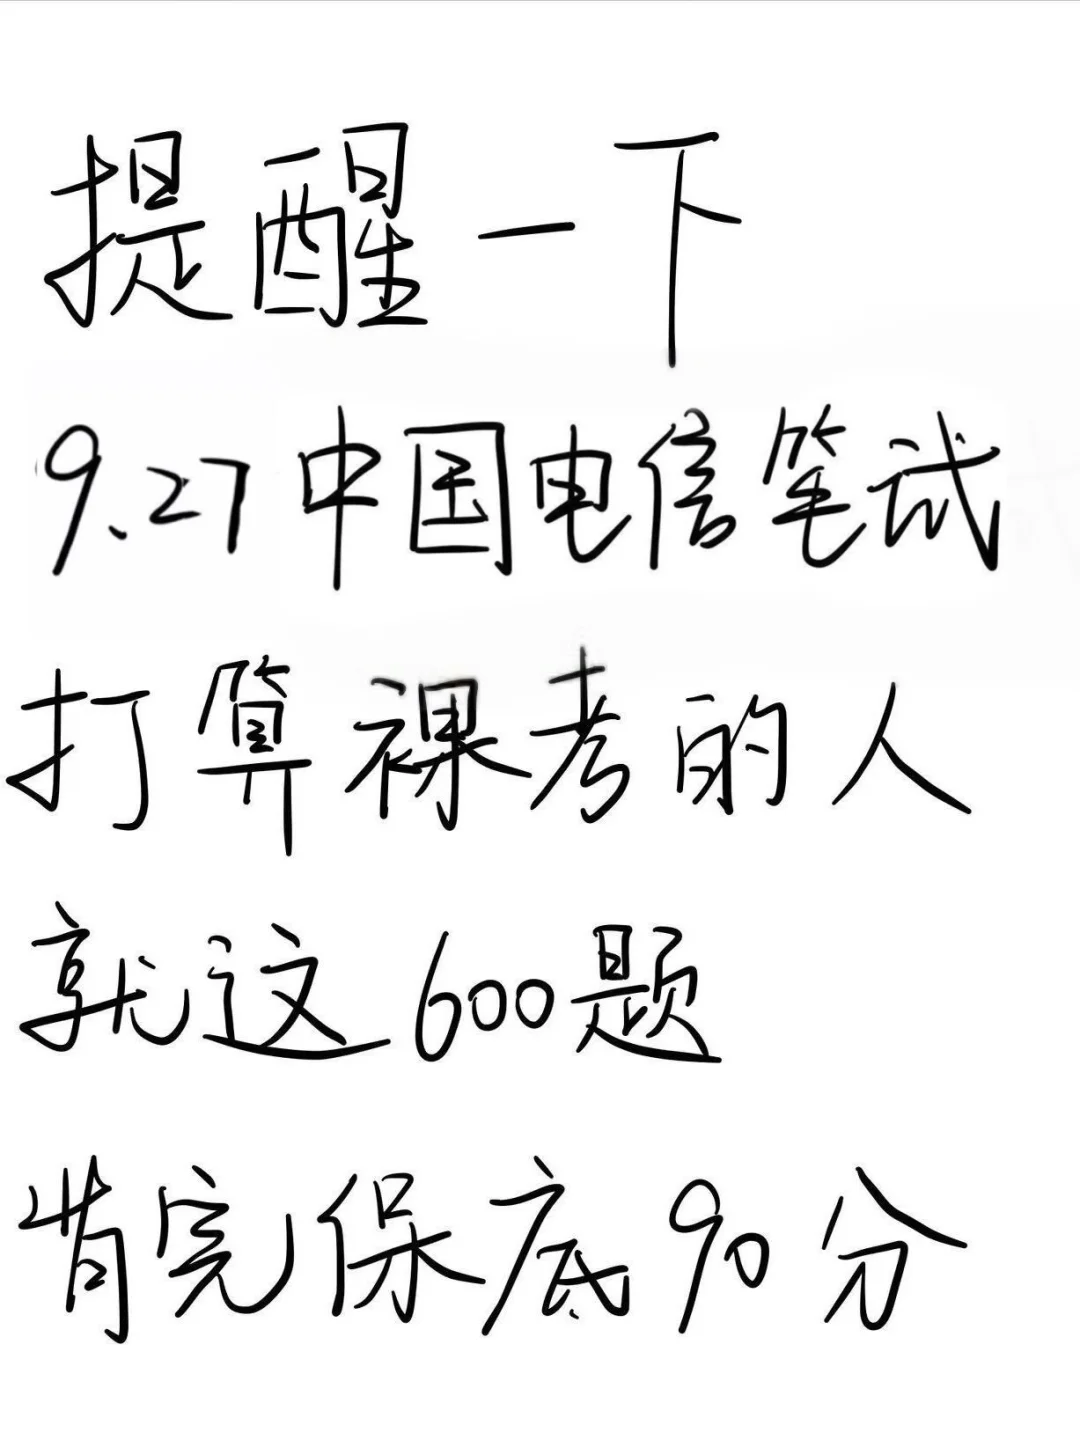 提醒一下
9.27中国电信笔试
打算裸考的人
就这600题
背完保底90分